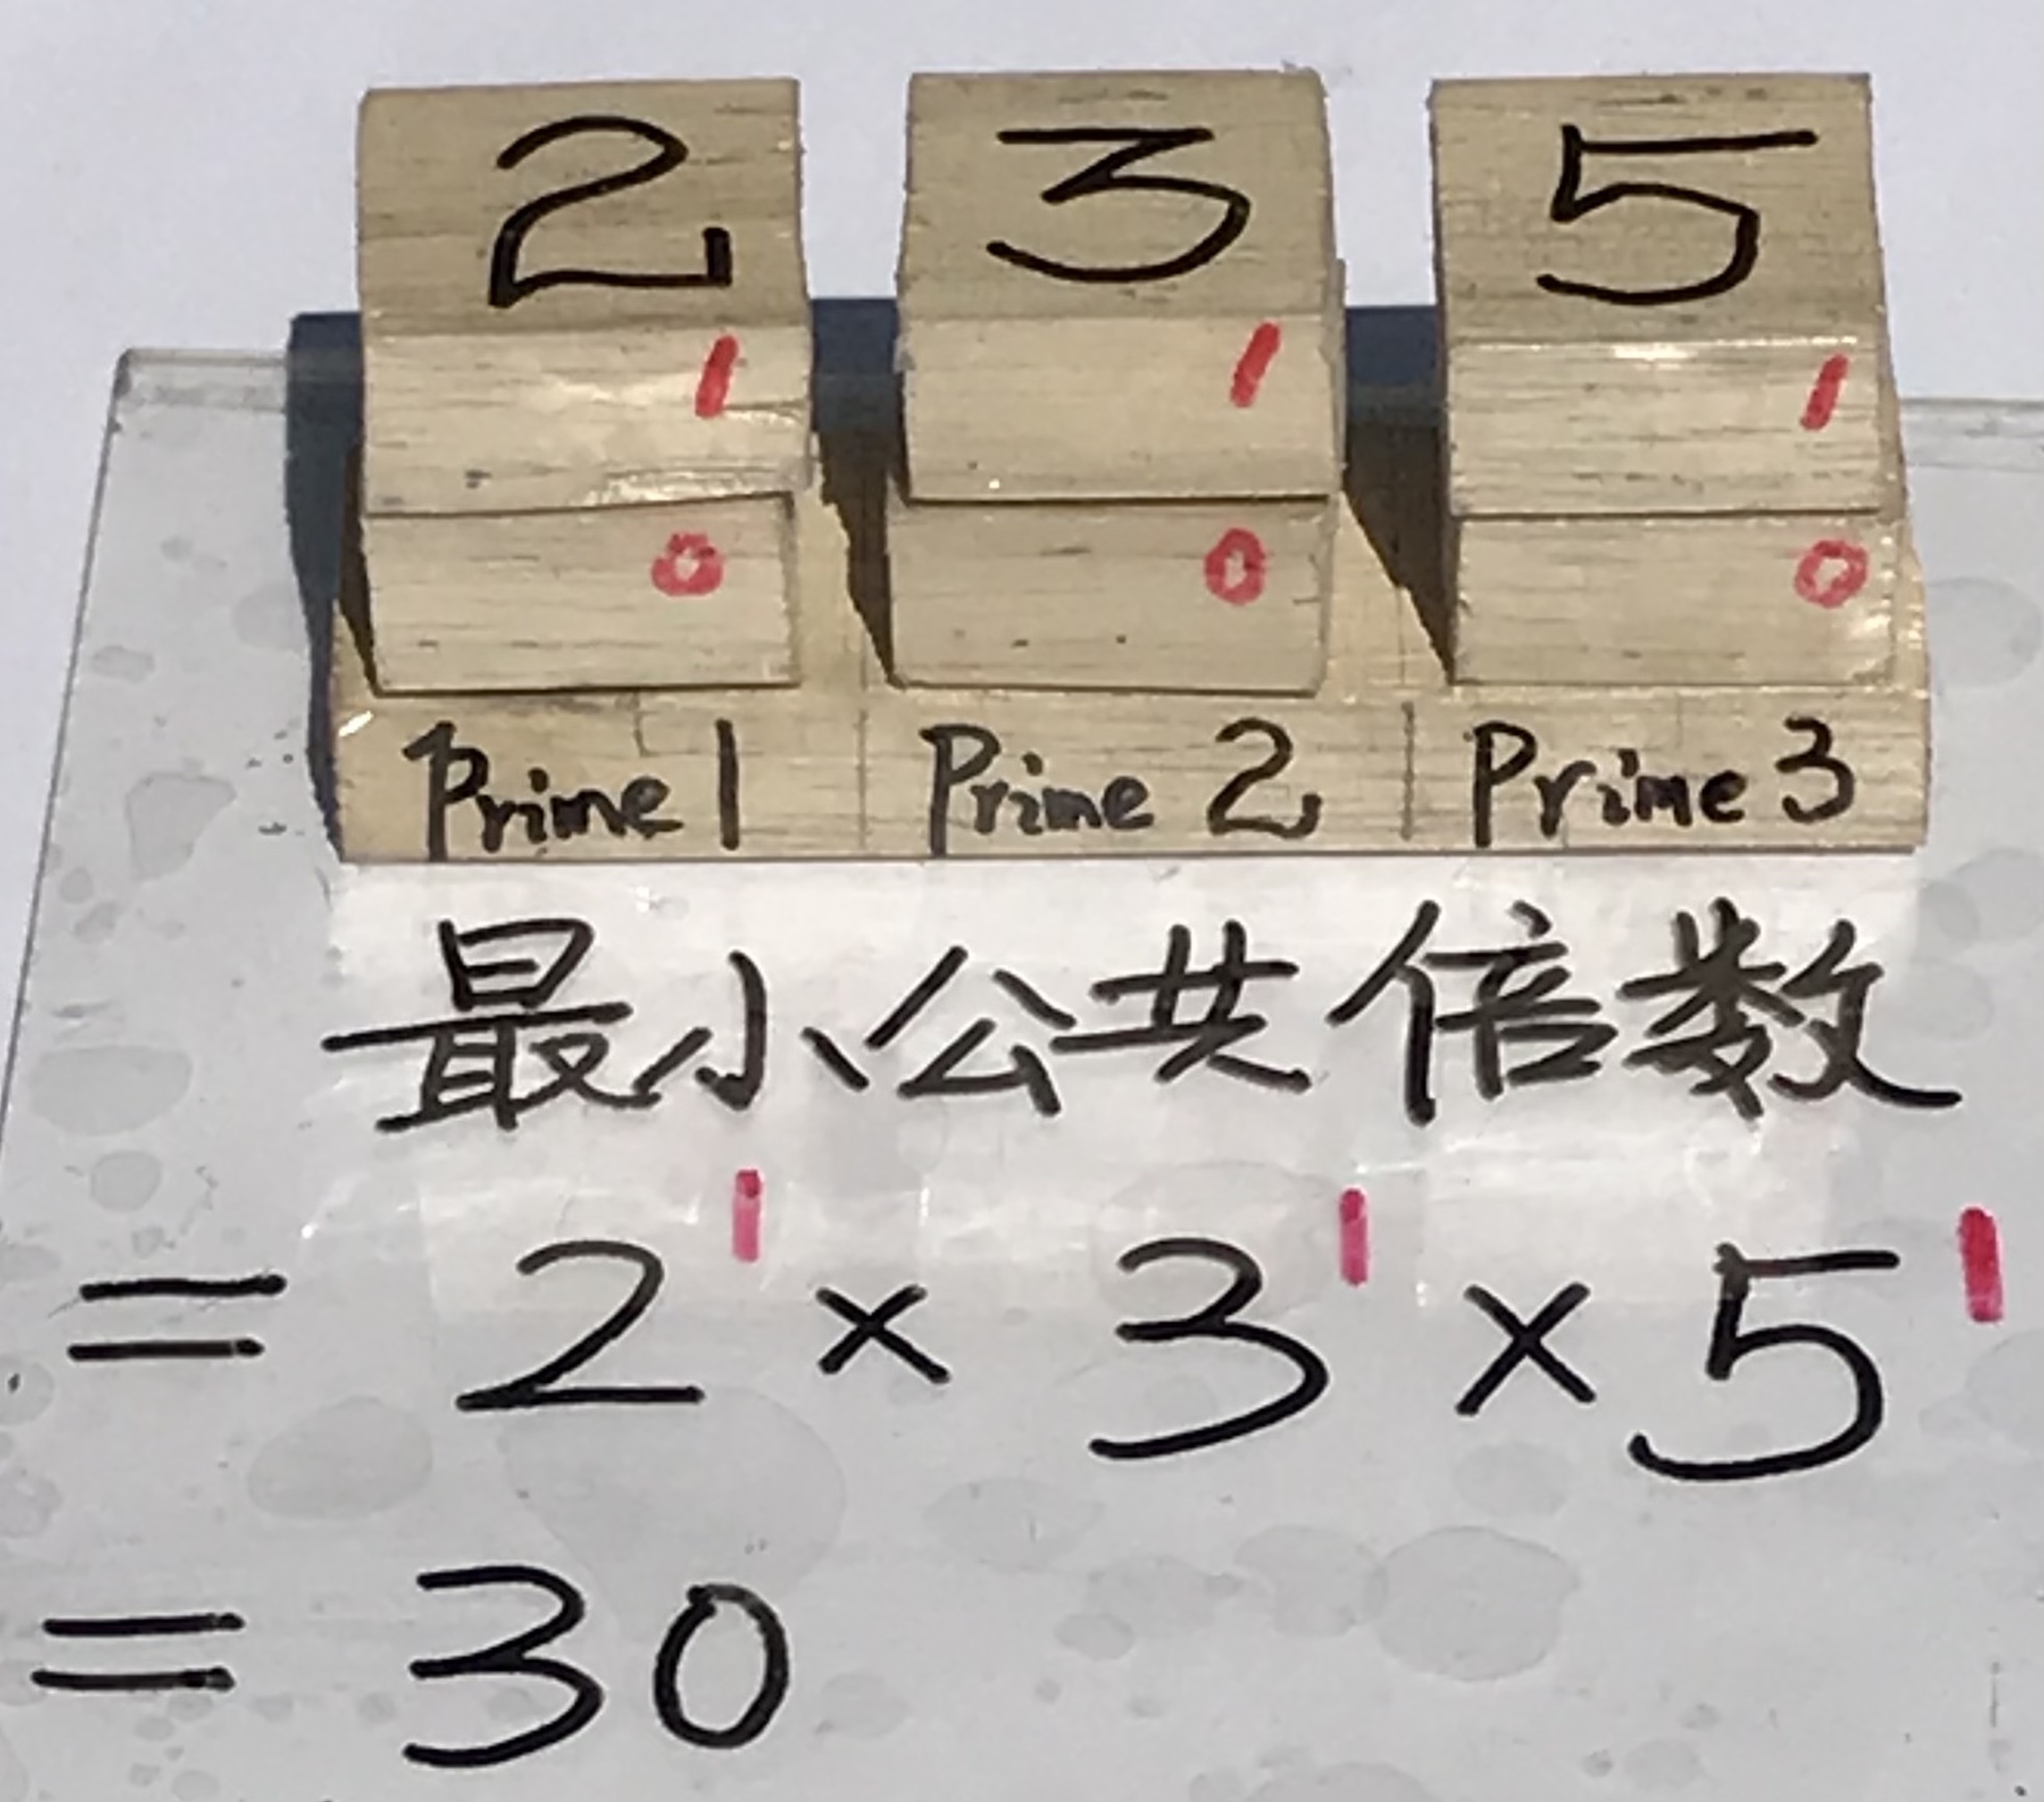 2 3 5
1 1 1
0 0 0
Prime 1 Prime 2 Prime 3
最小公共倍数
= 2¹ × 3¹ × 5¹
= 30